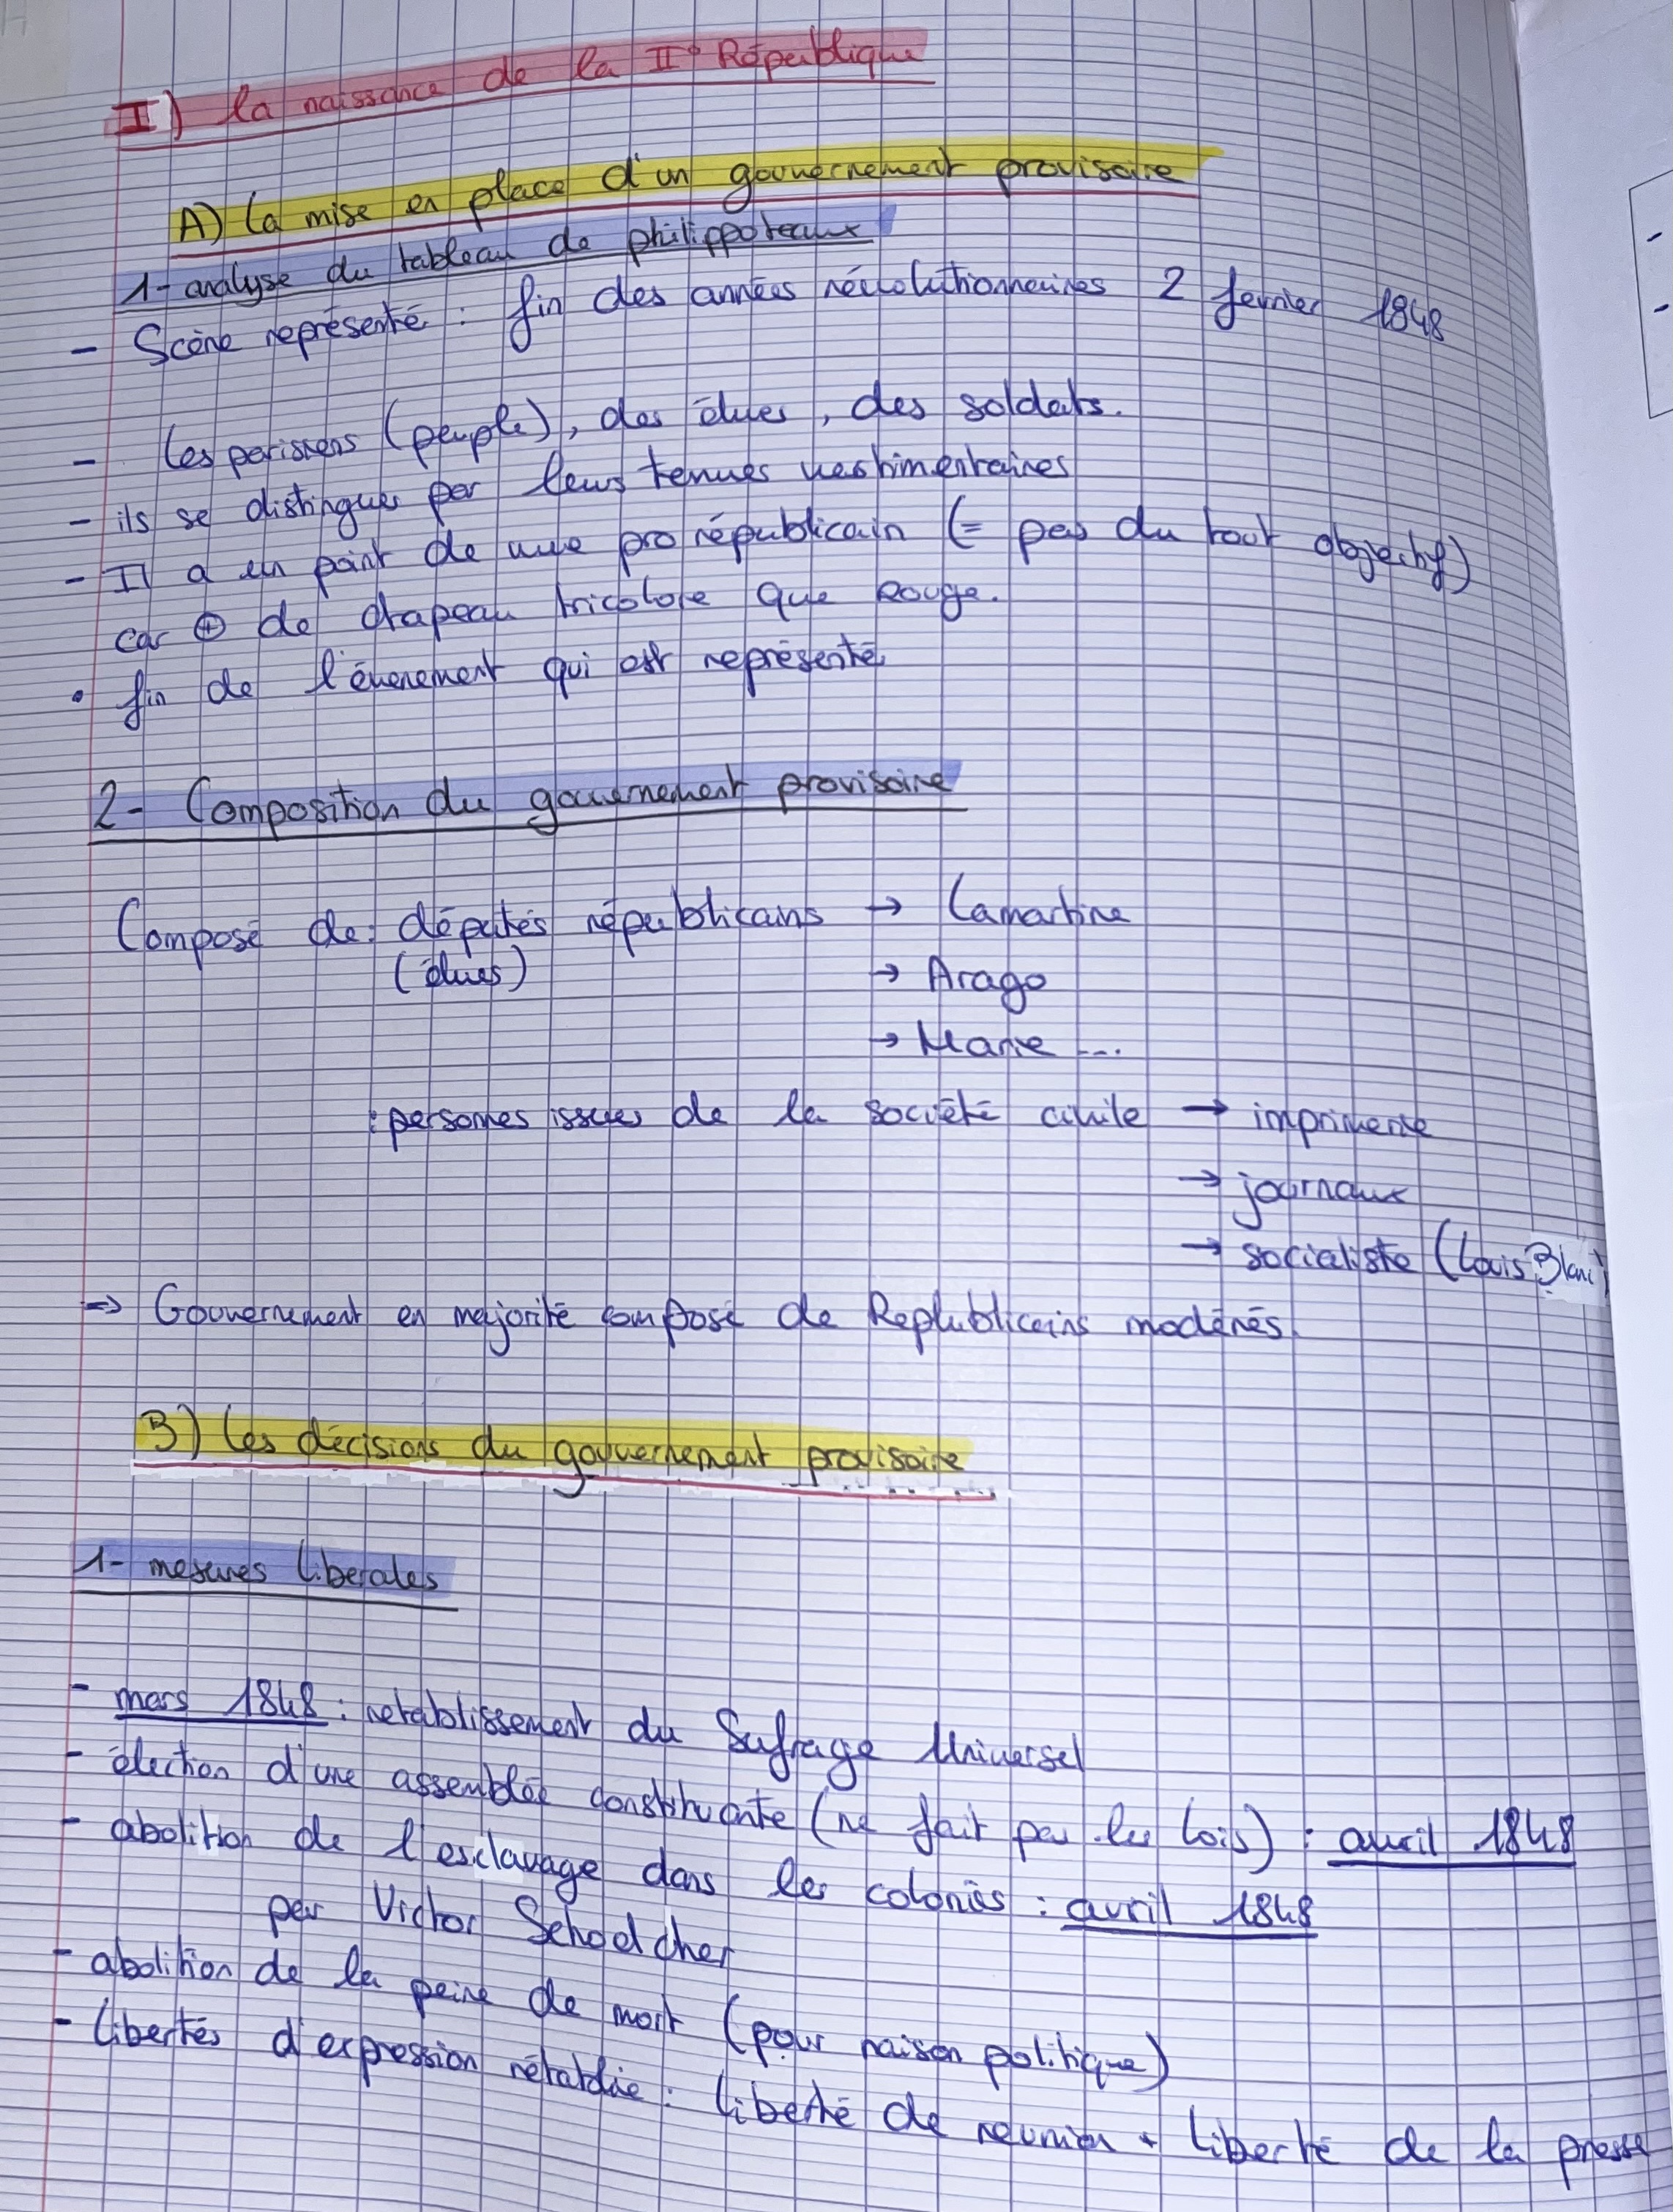 I) la naissance de la II° République
A) la mise en place d'un gouvernement provisoire
1- analyse du tableau de philippoteaux
- Scène représenté : fin des années révolutionnaires 2 fevrier 1848
- les parisiens (peuple), des élues, des soldats.
- ils se distingues par leurs tenues vestimentaires
- Il a un point de vue pro républicain (= pas du tout objectif)
car ⊕ de drapeau tricolore que Rouge.
• fin de l'évenement qui est représenté
2- Composition du gouvernement provisoire
Composé de : députés républicains → Lamartine
(élues)
→ Arago
→ Marie ...
: personnes issues de la société civile → imprimerie
→ journaux
→ socialiste (Louis Blanc)
=> Gouvernement en majorité composé de Républicains modérés.
B) les décisions du gouvernement provisoire
1- mesures liberales
- mars 1848 : retablissement du Sufrage Universel
- élection d'une assemblée constituante (ne fait pas les lois) : avril 1848
- abolition de l'esclavage dans les colonies : avril 1848
par Victor Schoelcher
- abolition de la peine de mort (pour raison politique)
- libertés d'expression rétablie : liberté de reunion + liberté de la presse